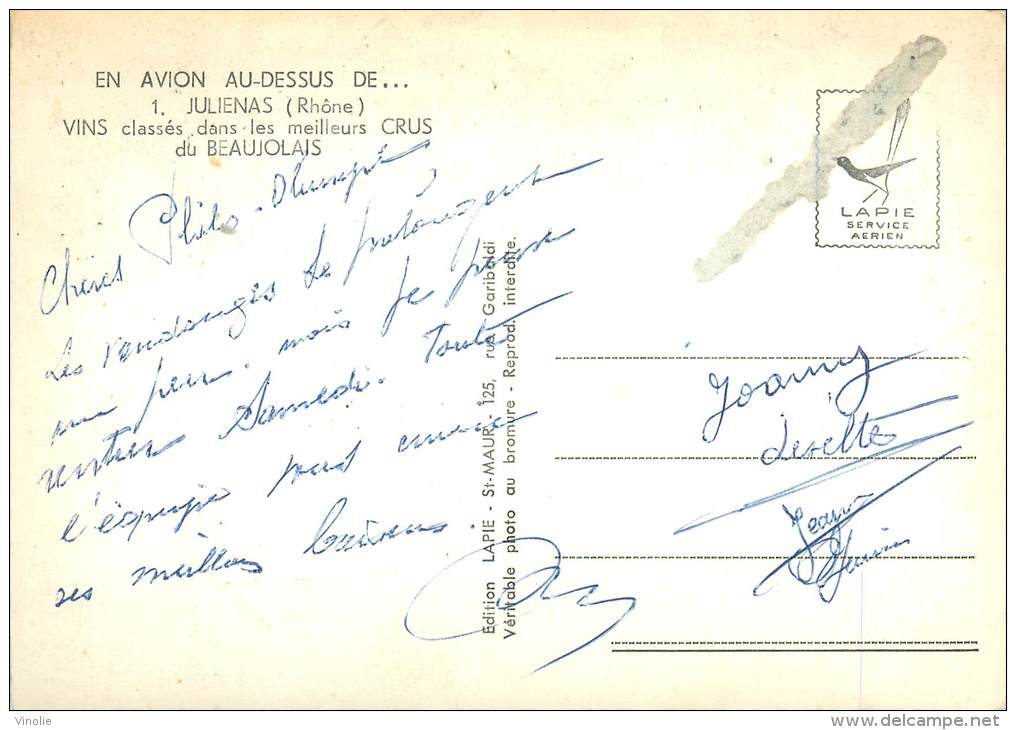 EN AVION AU-DESSUS DE...
1. JULIENAS (Rhône)
VINS classés dans les meilleurs CRUS
du BEAUJOLAIS
Chères Philo-Olympe
Les vendanges se prolongent
un peu. mais je pense
rentrer Samedi. Toute
l'équipe vous envoie
ses meilleurs baisers.
Edition LAPIE - St-MAUR - 125, rue Garibaldi
Véritable photo au bromure - Reprod. interdite.
LAPIE
SERVICE
AERIEN
Joanny
Vinolie
www.delcampe.net